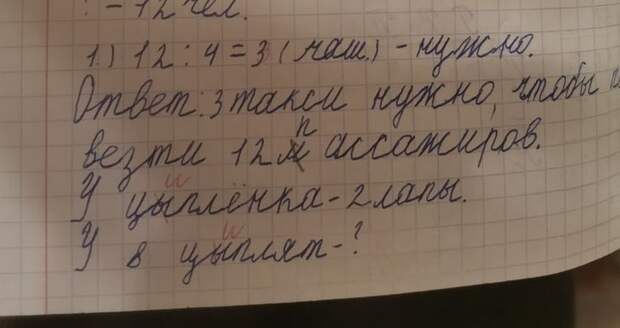 : - 12 чел.
1) 12 : 4 = 3 (маш.) - нужно.
Ответ: 3 такси нужно, чтобы
везти 12 пассажиров.
У цыплёнка - 2 лапы.
У 8 цыплят - ?